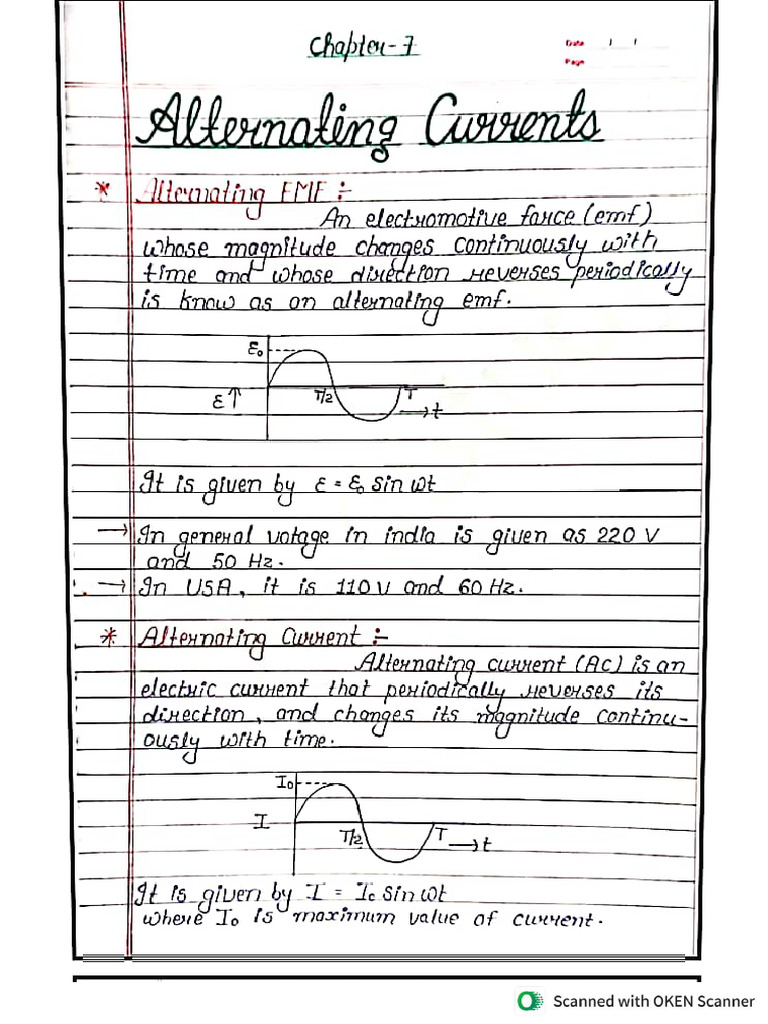 Chapter-7
Date / /
Page
Alternating Currents
* Alternating EMF :-
An electromotive force (emf)
whose magnitude changes continuously with
time and whose direction reverses periodically
is know as an alternating emf.
ε₀
ε↑ T/2 T
→t
It is given by ε = ε₀ sin ωt
→ In general votage in india is given as 220 V
and 50 Hz.
→ In USA, it is 110 V and 60 Hz.
* Alternating Current :-
Alternating current (AC) is an
electric current that periodically reverses its
direction, and changes its magnitude continu-
ously with time.
I₀
I T/2 T →t
It is given by I = I₀ sin ωt
where I₀ is maximum value of current.
Scanned with OKEN Scanner